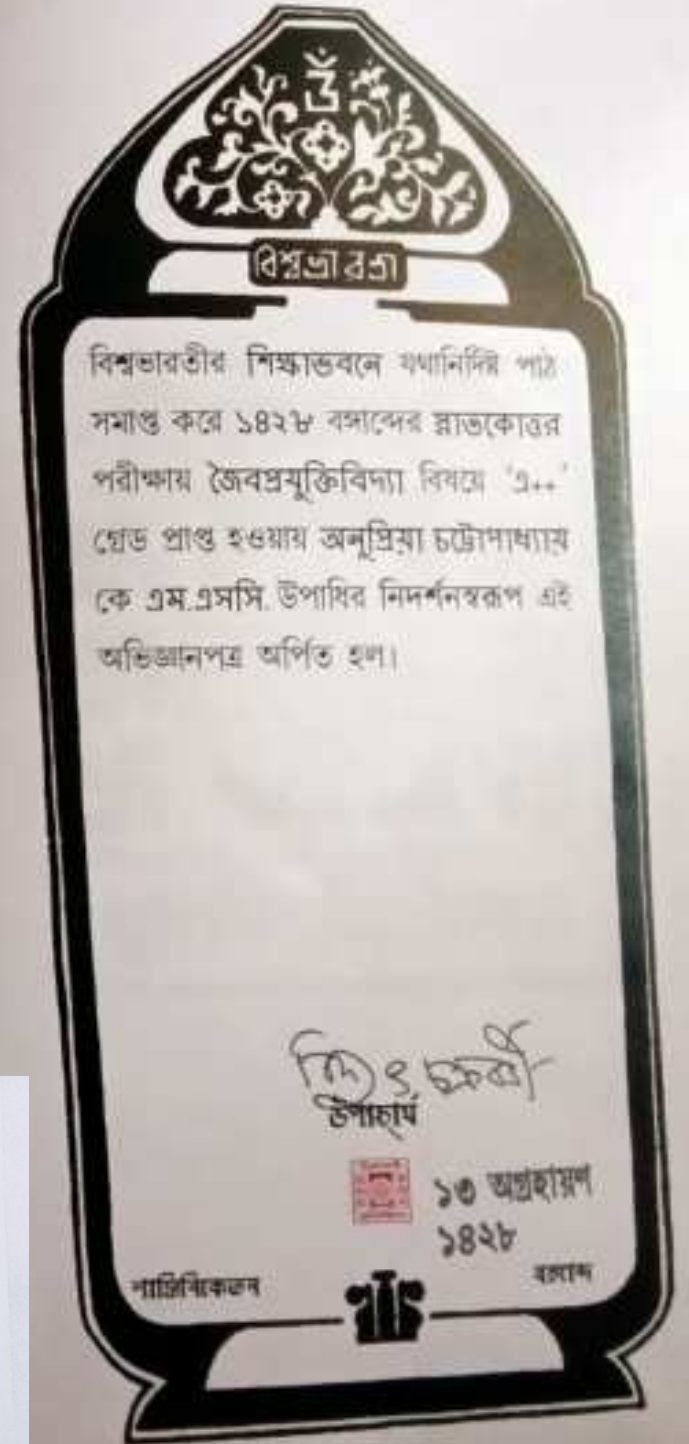 ওঁ
বিশ্বভারতী
বিশ্বভারতীর শিক্ষাভবনে যথানির্দিষ্ট পাঠ
সমাপ্ত করে ১৪২৮ বঙ্গাব্দের স্নাতকোত্তর
পরীক্ষায় জৈবপ্রযুক্তিবিদ্যা বিষয়ে ‘এ++’
গ্রেড প্রাপ্ত হওয়ায় অনুপ্রিয়া চট্টোপাধ্যায়
কে এম.এসসি. উপাধির নিদর্শনস্বরূপ এই
অভিজ্ঞানপত্র অর্পিত হল।
চক্রবর্তী
উপাচার্য
১৩ অগ্রহায়ণ
১৪২৮
শান্তিনিকেতন বঙ্গাব্দ